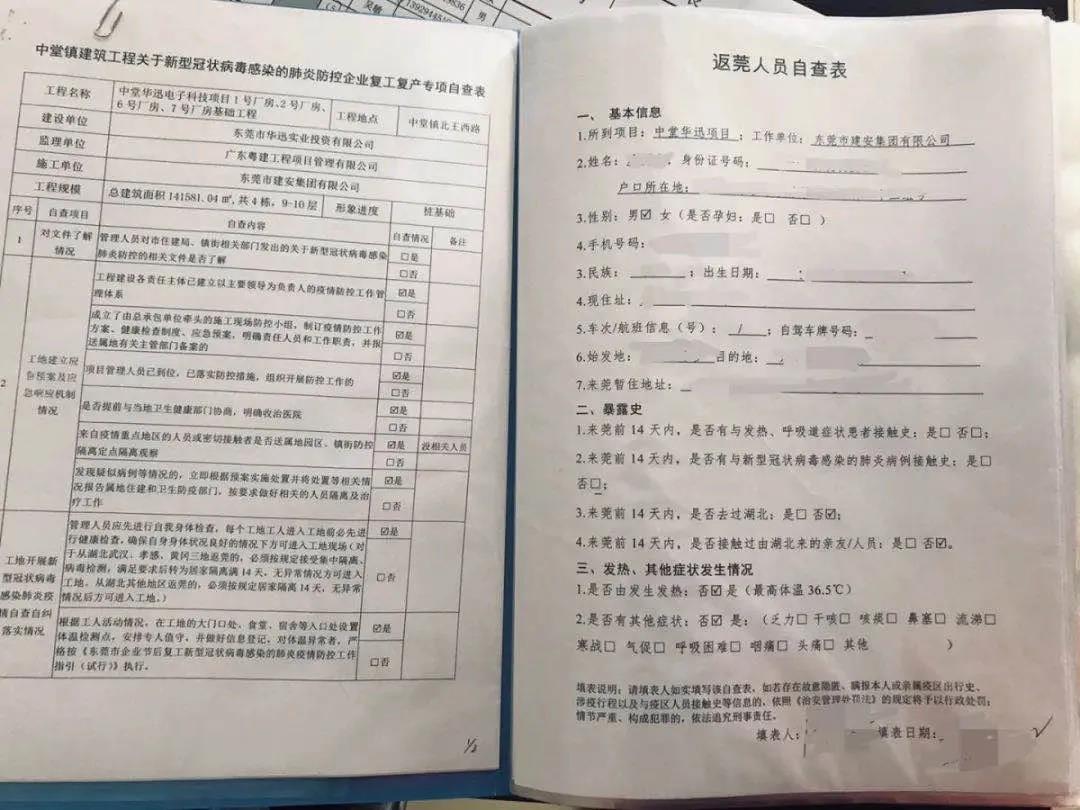 吴敏
男
中堂镇建筑工程关于新型冠状病毒感染的肺炎防控企业复工复产专项自查表
工程名称 中堂华迅电子科技项目1号厂房、2号厂房、
6号厂房、7号厂房基础工程 工程地点 中堂镇北王西路
建设单位 东莞市华迅实业投资有限公司
监理单位 广东粤建工程项目管理有限公司
施工单位 东莞市建安集团有限公司
工程规模 总建筑面积141581.04㎡,共4栋,9-10层 形象进度 桩基础
序号 自查项目 自查内容 自查情况 备注
1 对文件了解
情况 管理人员对市住建局、镇街相关部门发出的关于新型冠状病毒感染
肺炎防控的相关文件是否了解 □是
□否
2 工地建立应
急预案及应
急响应机制
情况
工程建设各责任主体已建立以主要领导为负责人的疫情防控工作管
理体系 ☑是
□否
成立了由总承包单位牵头的施工现场防控小组,制订疫情防控工作
方案、健康检查制度、应急预案,明确责任人员和工作职责,并报
送属地有关主管部门备案的 ☑是
□否
项目管理人员已到位,已落实防控措施,组织开展防控工作的 ☑是
□否
是否提前与当地卫生健康部门协商,明确收治医院 ☑是
□否
来自疫情重点地区的人员或密切接触者是否送属地园区、镇街防控
隔离定点隔离观察 ☑是 没相关人员
□否
发现疑似病例等情况的,立即根据预案实施处置并将处置等相关情
况报告属地住建和卫生防疫部门,按要求做好相关的人员隔离及治
疗工作 ☑是
□否
工地开展新
型冠状病毒
感染肺炎疫
情自查自纠
落实情况
管理人员应先进行自我身体检查,每个工地工人进入工地前必先进
行健康检查,确保自身身体状况良好的情况下方可进入工地现场(对
于从湖北武汉、孝感,黄冈三地返莞的,必须按规定接受集中隔离、
病毒检测,满足要求后转为居家隔离满14天,无异常情况方可进入
工地。从湖北其他地区返莞的,必须按规定居家隔离14天,无异常
情况后方可进入工地。) ☑是
□否
根据工人活动情况,在工地的大门口处、食堂、宿舍等入口处设置
体温检测点,安排专人值守,并做好信息登记,对体温异常者,严
格按《东莞市企业节后复工新型冠状病毒感染的肺炎疫情防控工作
指引(试行)》执行。 ☑是
□否
1/2
返莞人员自查表
一、 基本信息
1.所到项目:中堂华迅项目;工作单位:东莞市建安集团有限公司
2.姓名: ,身份证号码:
户口所在地:
3.性别:男☑ 女(是否孕妇:是□ 否□ )
4.手机号码:
3.民族: ;出生日期:
4.现住址:
5.车次/航班信息(号): / ;自驾车牌号码:
6.始发地: 目的地:
7.来莞暂住地址:
二、暴露史
1.来莞前14天内,是否有与发热、呼吸道症状患者接触史:是□ 否□;
2.来莞前14天内,是否有与新型冠状病毒感染的肺炎病例接触史:是□
否□;
3.来莞前14天内,是否去过湖北:是□ 否☑;
4.来莞前14天内,是否接触过由湖北来的亲友/人员:是□ 否☑。
三、发热、其他症状发生情况
1.是否由发生发热:否☑ 是(最高体温36.5℃)
2.是否有其他症状:否☑ 是:(乏力□ 干咳□ 咳痰□ 鼻塞□ 流涕□
寒战□ 气促□ 呼吸困难□ 咽痛□ 头痛□ 其他 )
填表说明:请填表人如实填写该自查表,如若存在故意隐匿、瞒报本人或亲属疫区出行史、
涉疫行程以及与疫区人员接触史等信息的,依照《治安管理处罚法》的规定将予以行政处罚;
情节严重、构成犯罪的,依法追究刑事责任。
填表人: 填表日期: